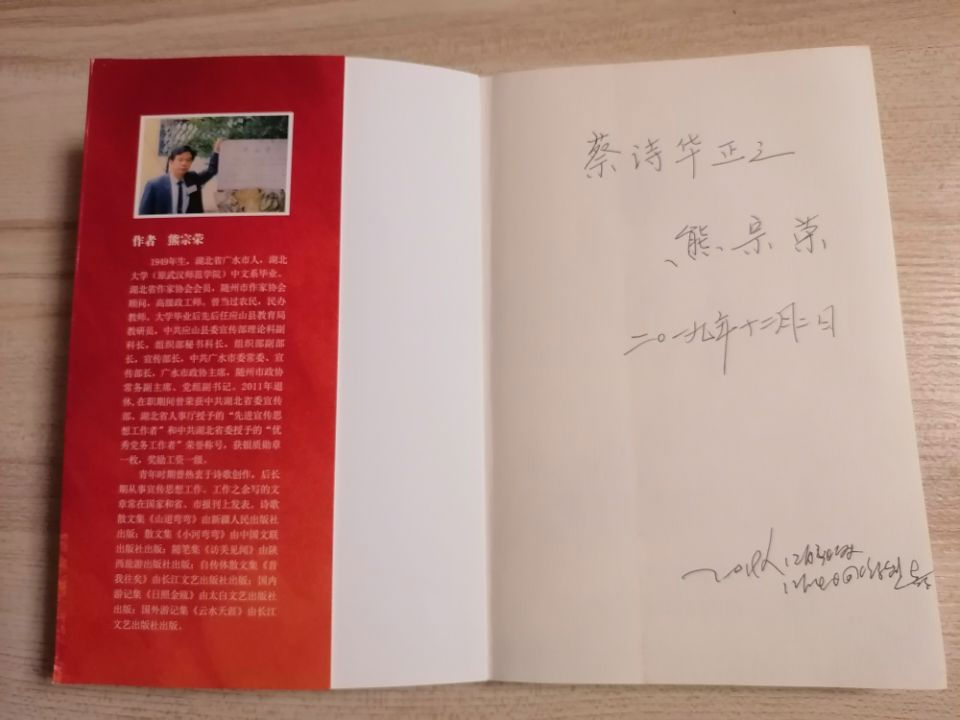 作者 熊宗荣
1949年生，湖北省广水市人，湖北
大学（原武汉师范学院）中文系毕业。
湖北省作家协会会员，随州市作家协会
顾问，高级政工师。曾当过农民，民办
教师。大学毕业后先后任应山县教育局
教研员，中共应山县委宣传部理论科副
科长，组织部秘书科长，组织部副部
长，宣传部长，中共广水市委常委、宣
传部长，广水市政协主席，随州市政协
常务副主席、党组副书记。2011年退
休。在职期间曾荣获中共湖北省委宣传
部、湖北省人事厅授予的“先进宣传思
想工作者”和中共湖北省委授予的“优
秀党务工作者”荣誉称号，获银质勋章
一枚，奖励工资一级。
青年时期曾热衷于诗歌创作，后长
期从事宣传思想工作。工作之余写的文
章常在国家和省、市报刊上发表。诗歌
散文集《山道弯弯》由新疆人民出版社
出版；散文集《小河弯弯》由中国文联
出版社出版；随笔集《访美见闻》由陕
西旅游出版社出版；自传体散文集《昔
我往矣》由长江文艺出版社出版；国内
游记集《日照金巅》由太白文艺出版社
出版；国外游记集《云水天涯》由长江
文艺出版社出版。
蔡诗华正之
熊宗荣
二〇一九年十二月二日